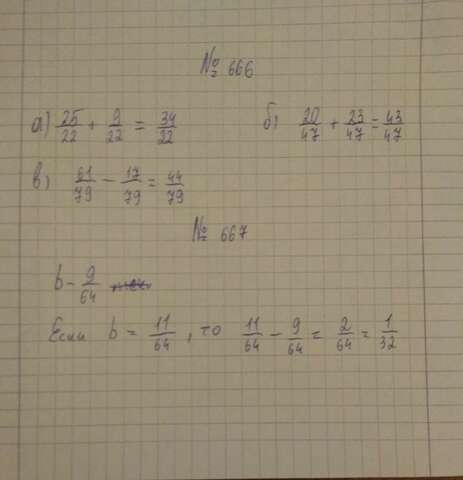 № 666
а) 25/22 + 9/22 = 34/22 б) 20/47 + 23/47 = 43/47
в) 61/79 − 17/79 = 44/79
№ 667
b − 9/64
Если b = 11/64, то 11/64 − 9/64 = 2/64 = 1/32